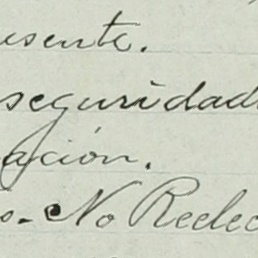 esente.
seguridad
ación.
o-No Reelec